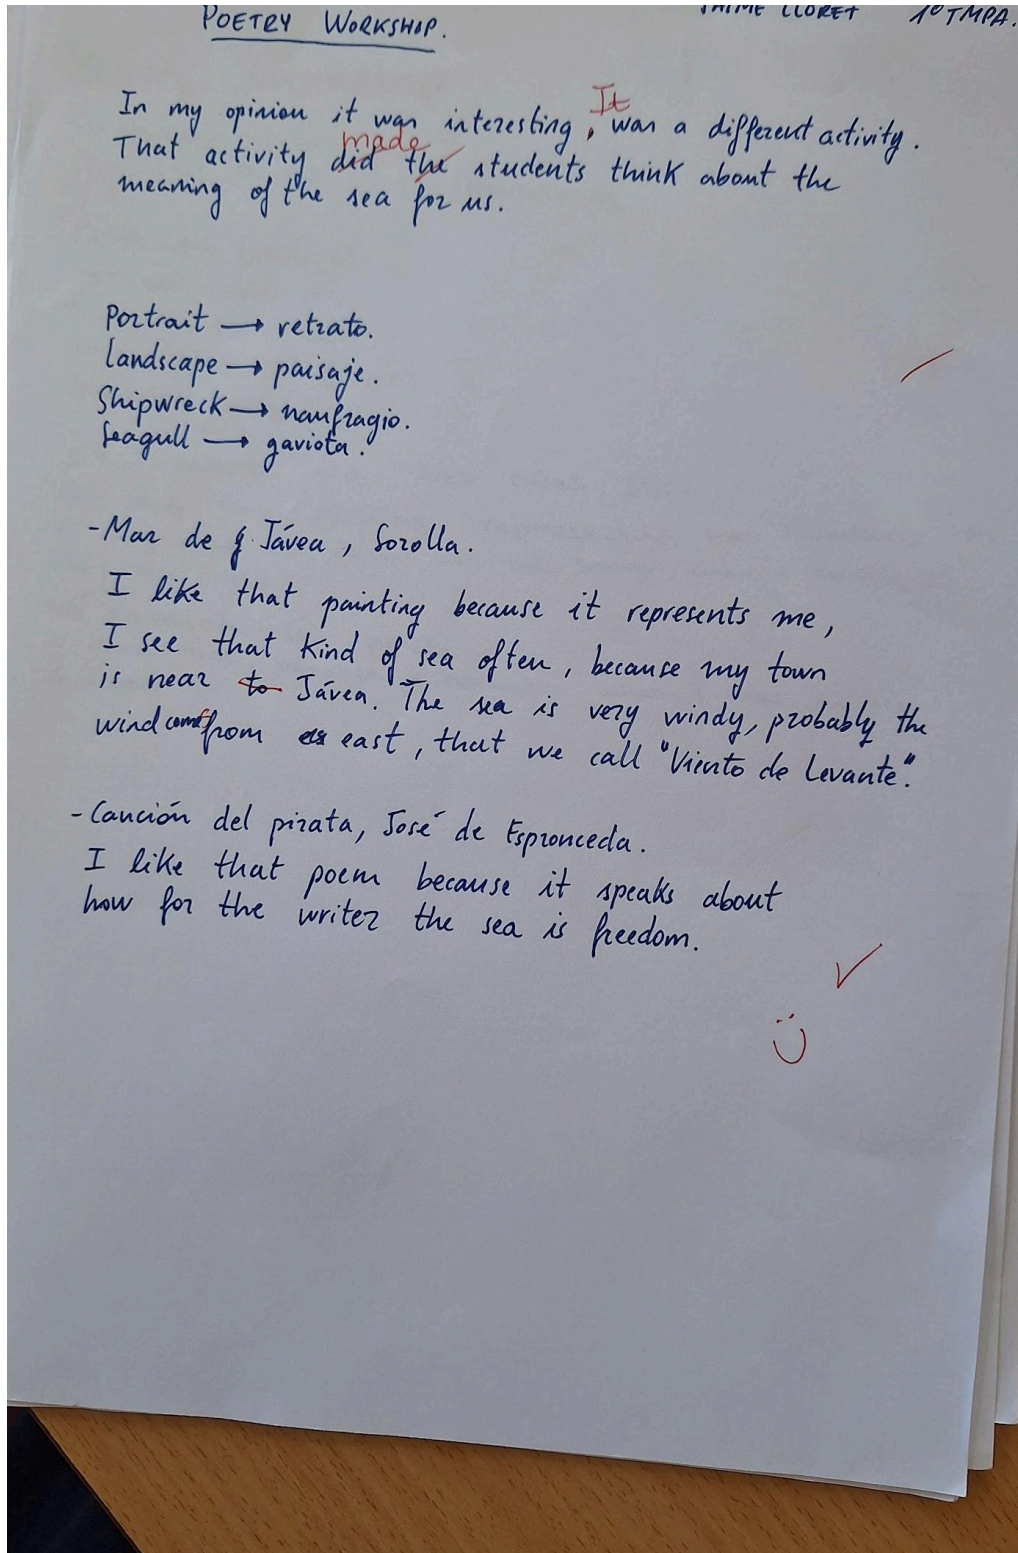 POETRY WORKSHOP.
JAIME LLORET 1º TMPA.
In my opinion it was interesting, It was a different activity.
made
That activity did the students think about the
meaning of the sea for us.
Portrait → retrato.
Landscape → paisaje.
Shipwreck → naufragio.
Seagull → gaviota.
- Mar de Jávea, Sorolla.
I like that painting because it represents me,
I see that kind of sea often, because my town
is near to Jávea. The sea is very windy, probably the
wind comes from east, that we call "Viento de Levante".
- Canción del pirata, José de Espronceda.
I like that poem because it speaks about
how for the writer the sea is freedom.